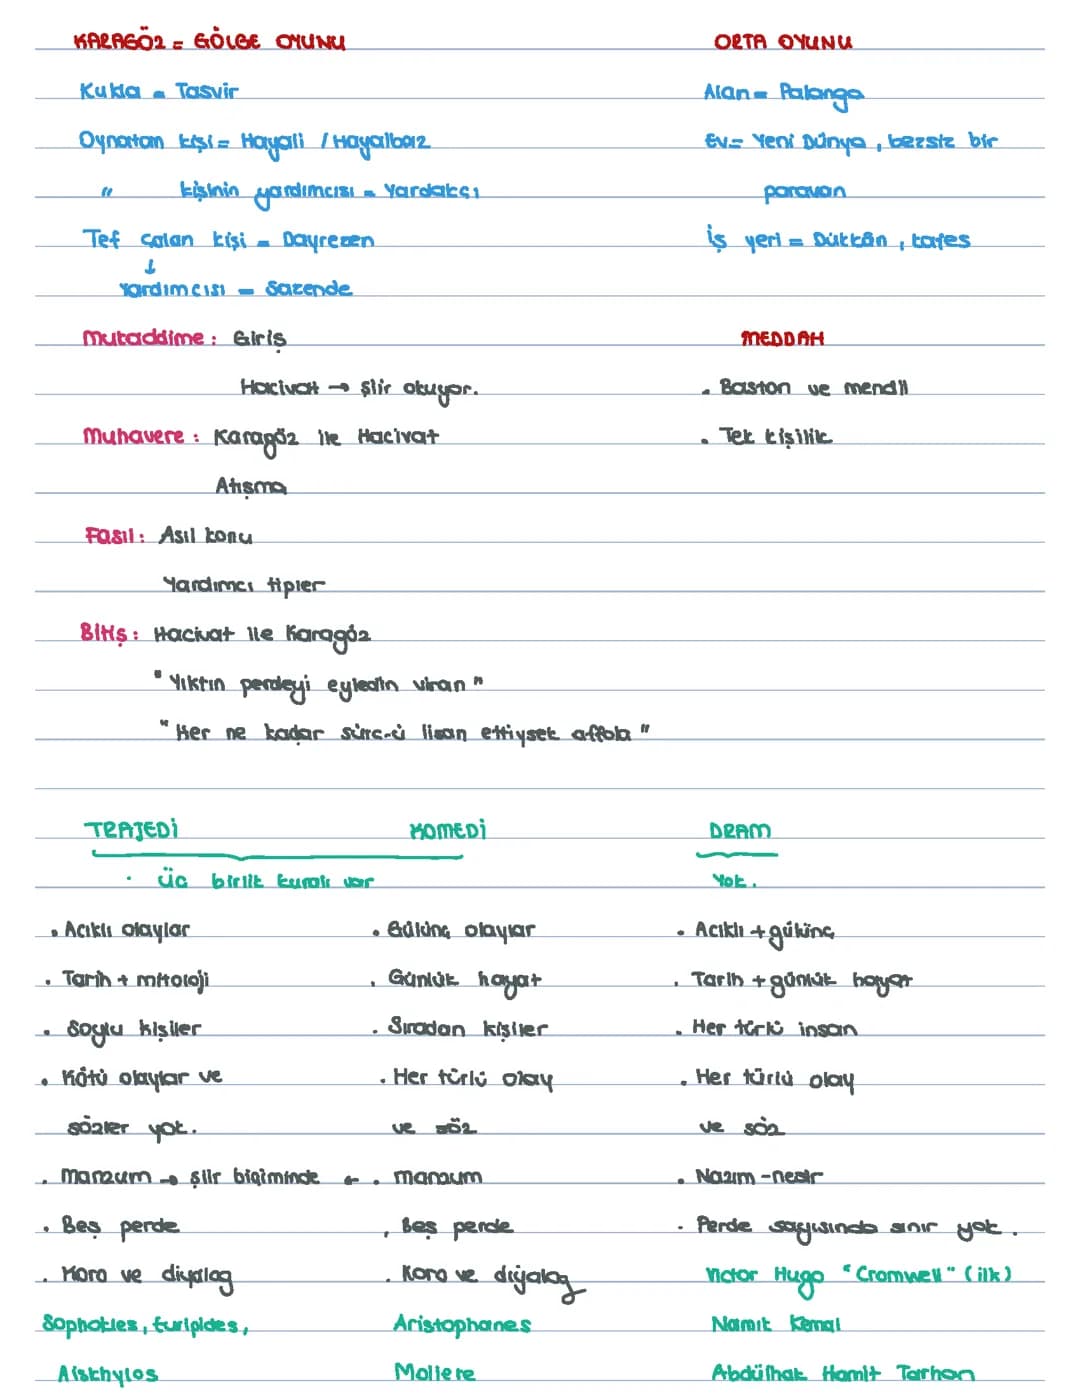 KARAGÖZ = GÖLGE OYUNU
Kukla = Tasvir
Oynatan kişi = Hayali / Hayalbaz
" kişinin yardımcısı = Yardakçı
Tef çalan kişi = Dayrezen
↓
Yardımcısı = Sazende
Mukaddime : Giriş
Hacivat → şiir okuyor.
Muhavere : Karagöz ile Hacivat
Atışma
Fasıl : Asıl konu
Yardımcı tipler
Bitiş : Hacivat ile Karagöz
" Yıktın perdeyi eyledin viran "
" Her ne kadar sürc-ü lisan ettiysek affola "
ORTA OYUNU
Alan = Palanga
Ev = Yeni Dünya , bezsiz bir
paravan
İş yeri = Dükkân , kafes
MEDDAH
• Baston ve mendil
• Tek kişilik
TRAJEDİ KOMEDİ DRAM
• üç birlik kuralı var Yok .
• Acıklı olaylar • Gülünç olaylar • Acıklı + gülünç
• Tarih + mitoloji • Günlük hayat • Tarih + günlük hayat
• Soylu kişiler • Sıradan kişiler • Her türlü insan
• Kötü olaylar ve • Her türlü olay • Her türlü olay
sözler yok. ve söz ve söz
• Manzum → şiir biçiminde ← • manzum • Nazım - nesir
• Beş perde • Beş perde • Perde sayısında sınır yok .
• Koro ve diyalog • Koro ve diyalog Victor Hugo "Cromwell" (ilk)
Sophokles , Euripides , Aristophanes Namık Kemal
Aiskhylos Moliere Abdülhak Hamit Tarhan